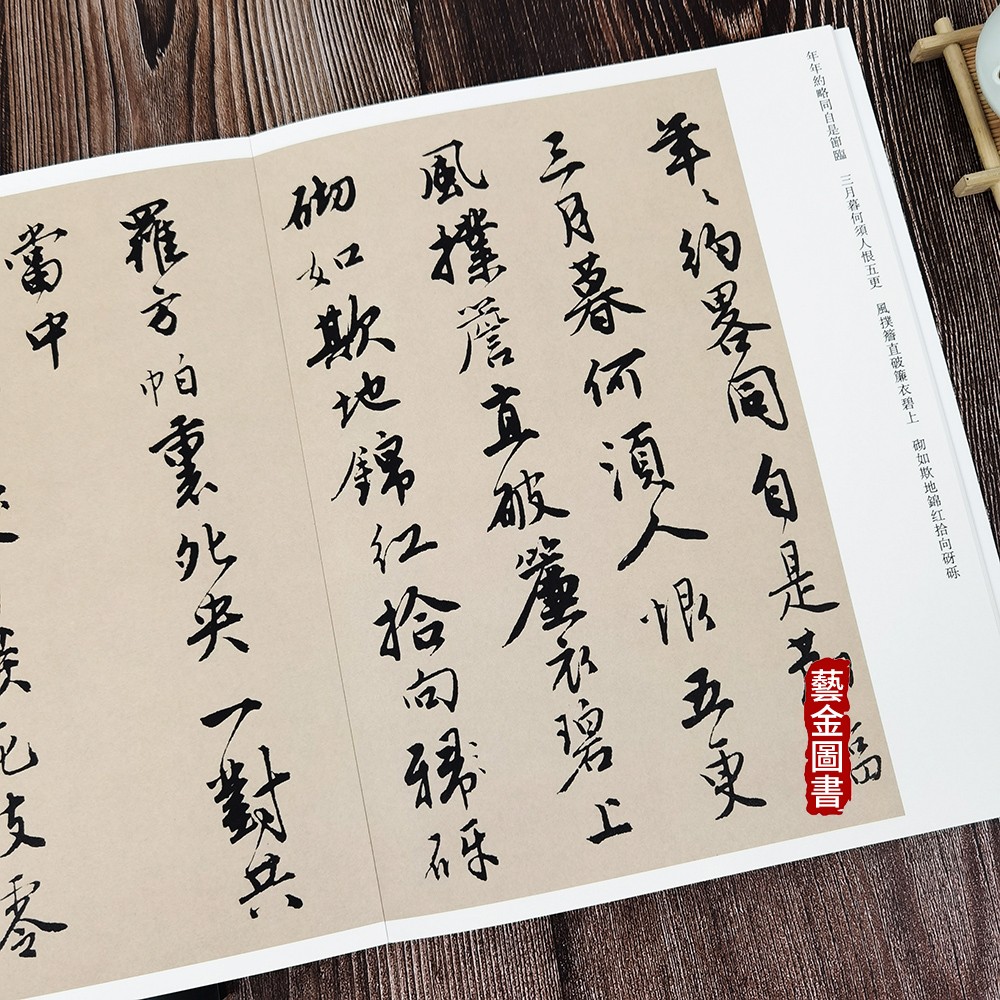 年年約略同自是節臨 三月暮何須人恨五更 風撲簷直破簾衣碧上 砌如欺地錦红拾向砑砾
年〻約畧同自是
三月暮何須人恨五更
風撲簷直破簾衣碧上
砌如欺地錦红拾向
羅方帕裏死央一對共
當中
支零
藝金圖書